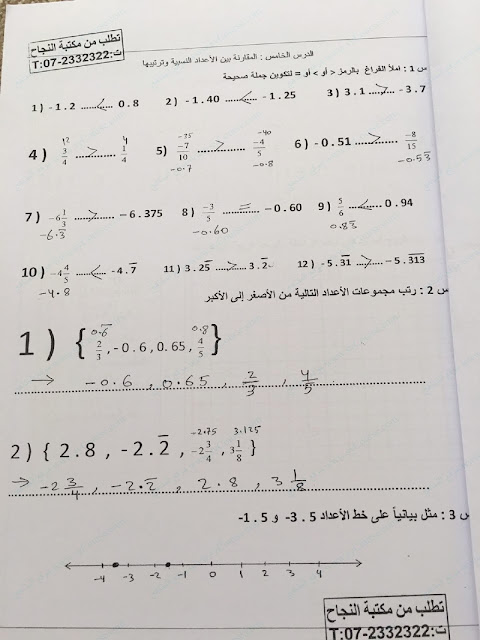 تطلب من مكتبة النجاح
ت:2332322-07:T
الدرس الخامس : المقارنة بين الأعداد النسبية وترتيبها
س 1 : املأ الفراغ بالرمز < أو > أو = لتكوين جملة صحيحة
1 ) -1.2 ....<.... 0.8 2 ) -1.40 ....<.... -1.25 3 ) 3.1 ....>.... -3.7
12 4 -35 -40
4 ) 3/4 ....>.... 1/4 5 ) -7/10 ....>.... -4/5 6 ) -0.51 ....>.... -8/15
-0.7 -0.8 -0.53̅
7 ) -6 1/3 ....>.... -6.375 8 ) -3/5 ....=.... -0.60 9 ) 5/6 ....<.... 0.94
-6.3̅ -0.60 0.83̅
10 ) -4 4/5 ....<.... -4.7̅ 11 ) 3.25̅ ....>.... 3.2̅ 12 ) -5.3̅1̅ ....>.... -5.3̅1̅3̅
-4.8
س 2 : رتب مجموعات الأعداد التالية من الأصغر إلى الأكبر
0.6̅ 0.8
1 ) { 2/3 , -0.6 , 0.65 , 4/5 }
→ -0.6 , 0.65 , 2/3 , 4/5
-2.75 3.125
2 ) { 2.8 , -2.2̅ , -2 3/4 , 3 1/8 }
→ -2 3/4 , -2.2̅ , 2.8 , 3 1/8
س 3 : مثل بيانياً على خط الأعداد 3.5- و 1.5-
-4 -3 -2 -1 0 1 2 3 4
تطلب من مكتبة النجاح
ت:2332322-07:T